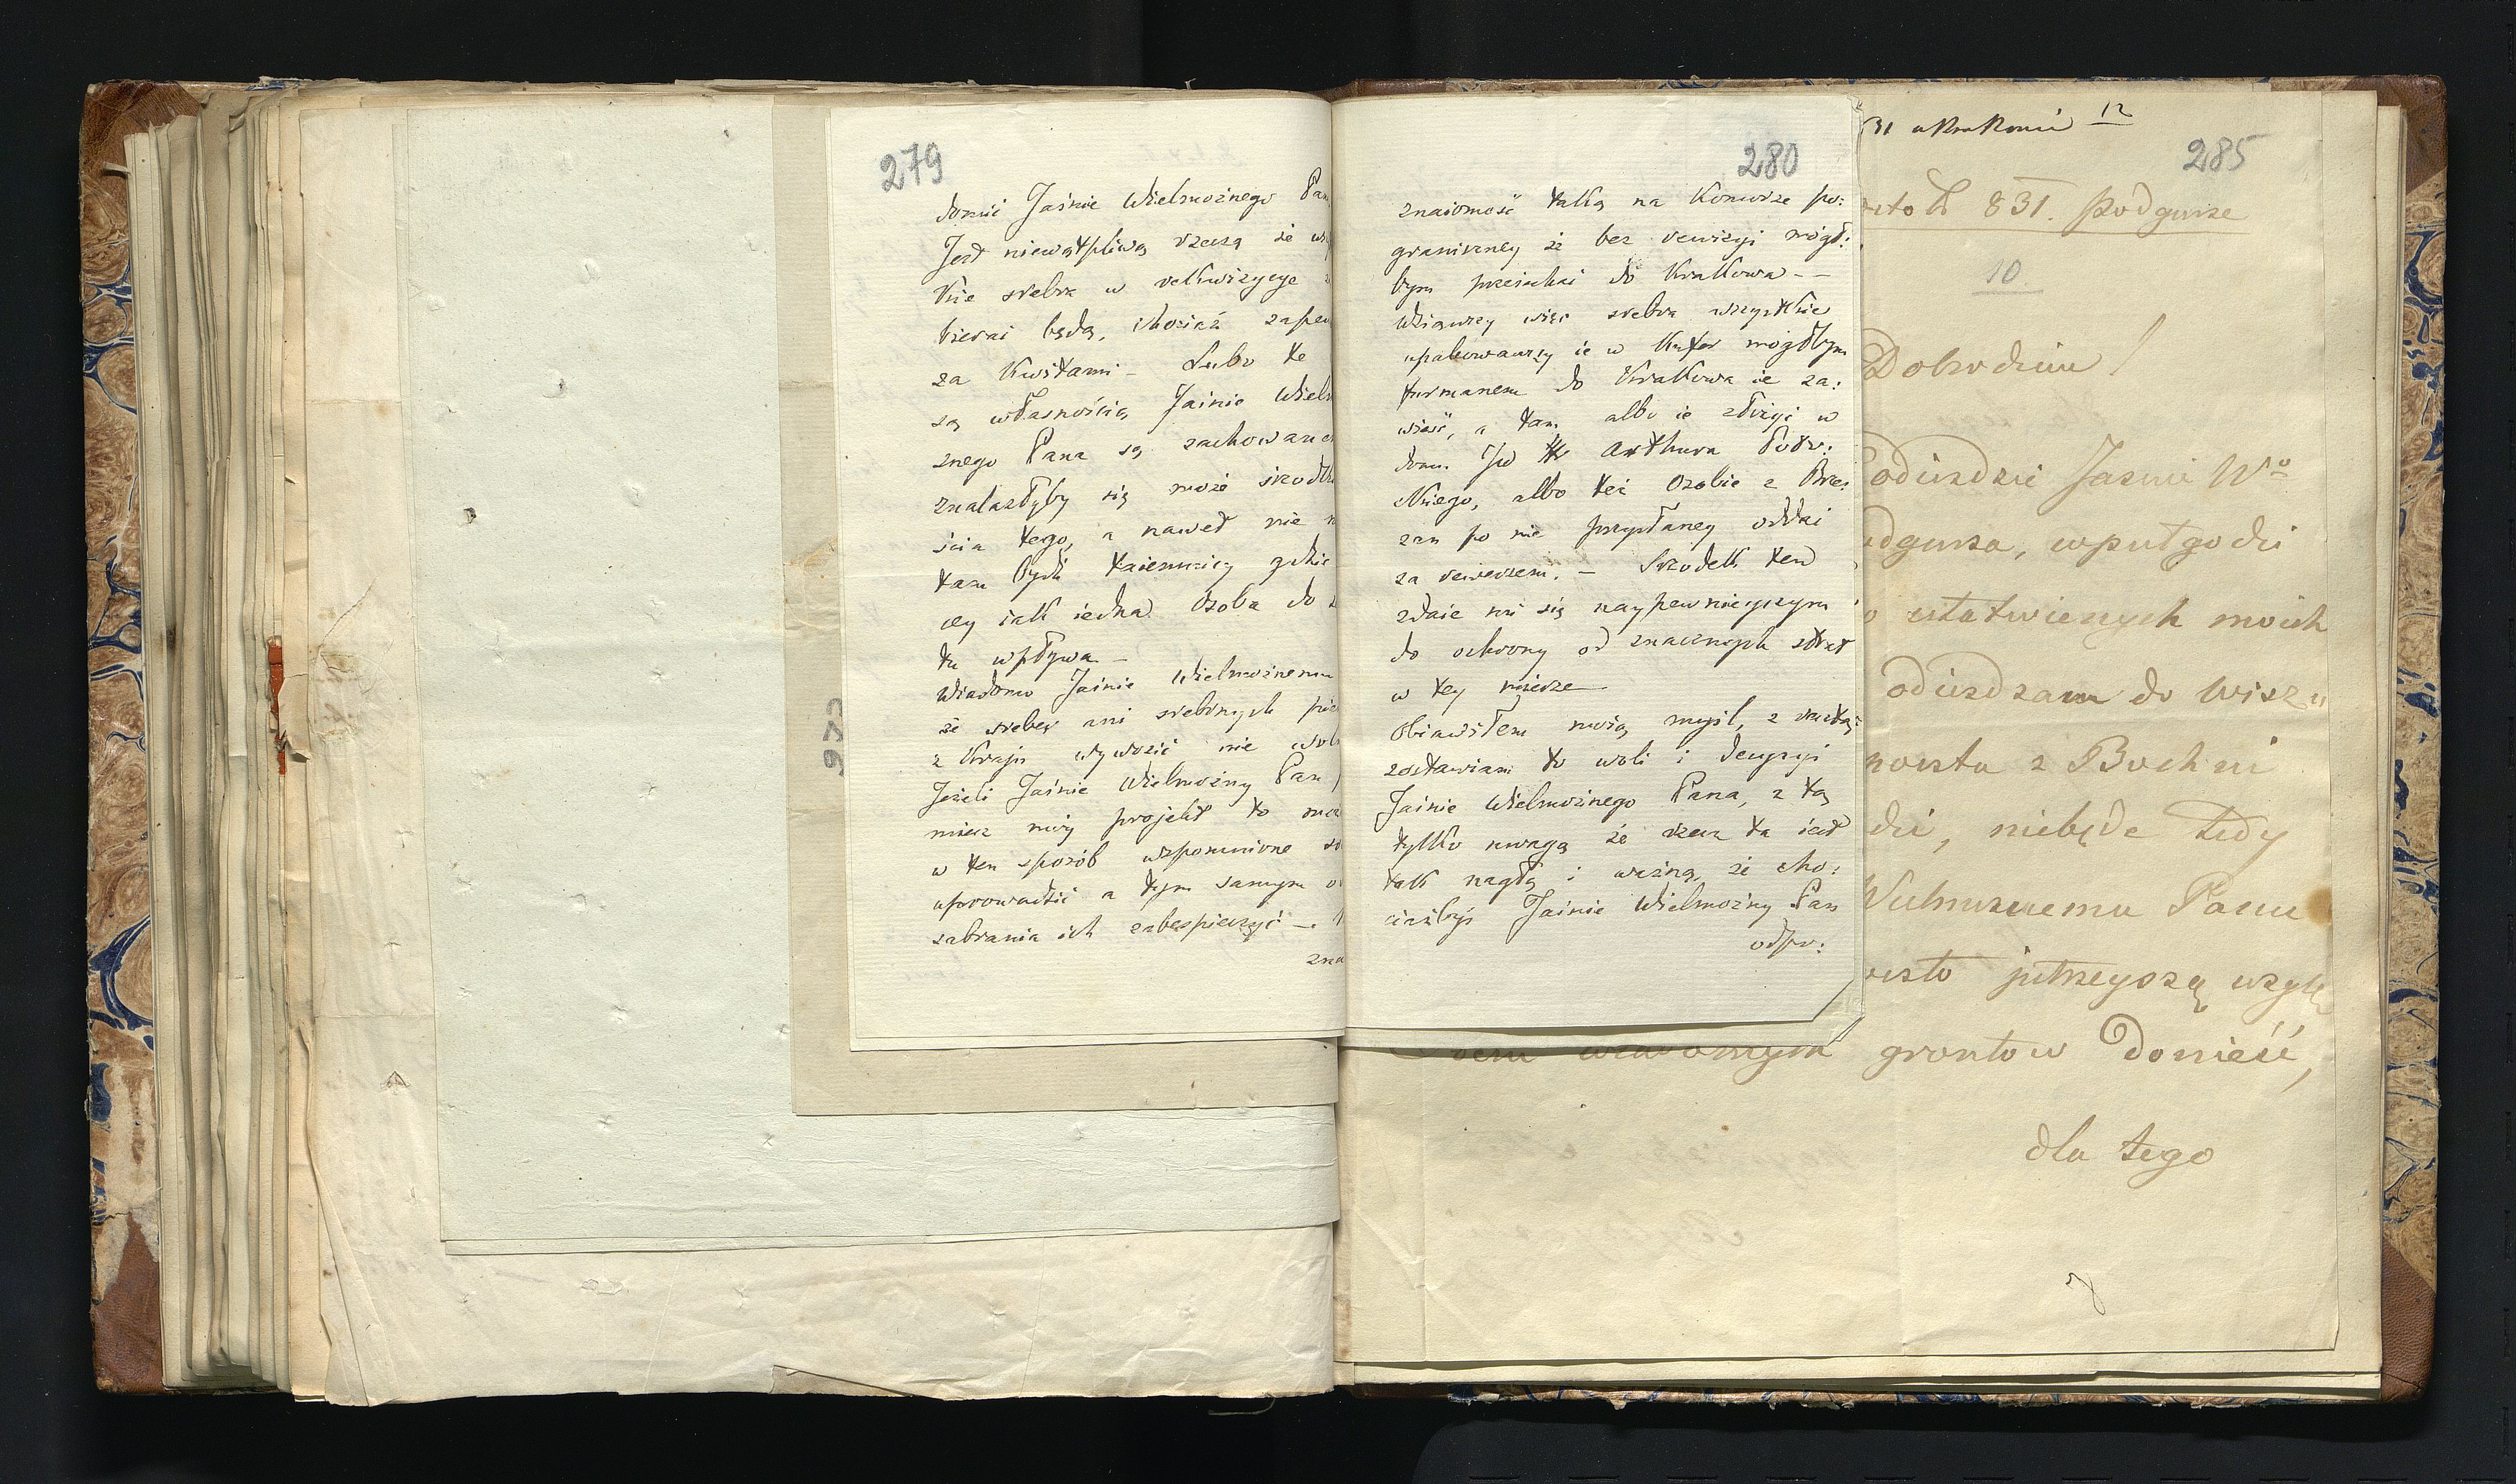 279
domić Jaśnie Wielmożnego Pan
Jest niewątpliwą rzeczą że
kie srebra w rekwizycye
bierać będą, chociaż zape
za kwitami – Lubo te
są własnością Jaśnie Wiel
znego Pana są zachowane
znalazłyby się może srzod
ścia tego, a nawet nie
tam bydź taiemnicy gdzie
cey iak iedna Osoba do
tu wpływa –
Wiadomo Jaśnie Wielmożnemu
że sreber ani srebrnych pie
z Kraju wywozić nie wol
Jeżeli Jaśnie Wielmożny Pan
miesz móy projekt to
w ten sposób wspomnione
uprowadzić a tym samym
zabrania ich zabespieczyć –
zna
280
znaiomość taką na Komorze po:
graniczney że bez rewizyi mógł:
bym przeiechać do Krakowa - -
Wziąwszy więc srebra wszystkie
upakowawszy ie w Kufer mógłbym
furmanem do Krakowa ie za:
wieść, a tam albo ie złożyć w
domu JW Hr Arthura Poto:
ckiego, albo też Osobie z Brze:
zan po nie przysłaney oddać
za rewersem. – Srzodek ten
zdaie mi się naypewnieyszym
do ochrony od znacznych strat
w tey mierze –
Obiawiłem moią myśl, z resztą
zostawiam to woli i decyzyi
Jaśnie Wielmożnego Pana, z tą
tylko uwagą że rzecz ta iest
tak nagłą i ważną, że cho:
ciażbyś Jaśnie Wielmożny Pan
odpo:
12
285
831. Podgurze
10
Dobrodzieiu!
odiezdzie Jasnie Wo
dgurza, wpułgodzi
ustatwienych moich
odiezdzam do Wisz
z Bochni
dzi, niebęde tedy
Wielmoznemu Panu
jutrzeyszą wzglę
dem wiadomych grontow donieść,
dla tego